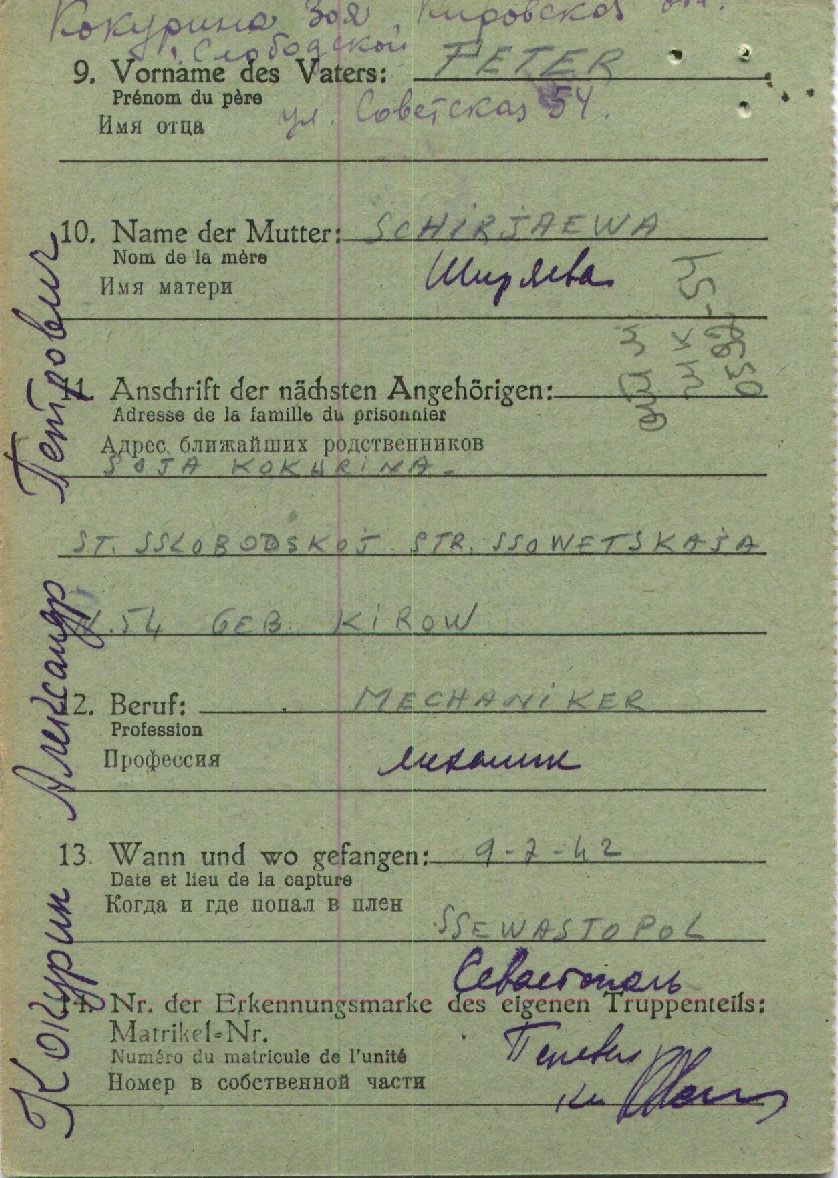 Кокурина Зоя, Кировская
г. Слободской
9. Vorname des Vaters: PETER
Prénom du père
Имя отца
ул. Советская 54.
10. Name der Mutter: SCHIRJAEWA
Nom de la mère
Имя матери
Ширяева
11. Anschrift der nächsten Angehörigen:
Adresse de la famille du prisonnier
Адрес ближайших родственников
SOJA KOKURINA
ST. SSLOBODSKOJ STR. SSOWETSKAJA
N.54 GEB. KIROW
12. Beruf: MECHANIKER
Profession
Профессия
механик
13. Wann und wo gefangen: 9-7-42
Date et lieu de la capture
Когда и где попал в плен
SSEWASTOPOL
Севастополь
14. Nr. der Erkennungsmarke des eigenen Truppenteils:
Matrikel-Nr.
Numéro du matricule de l'unité
Номер в собственной части
Кокурин Александр Петрович